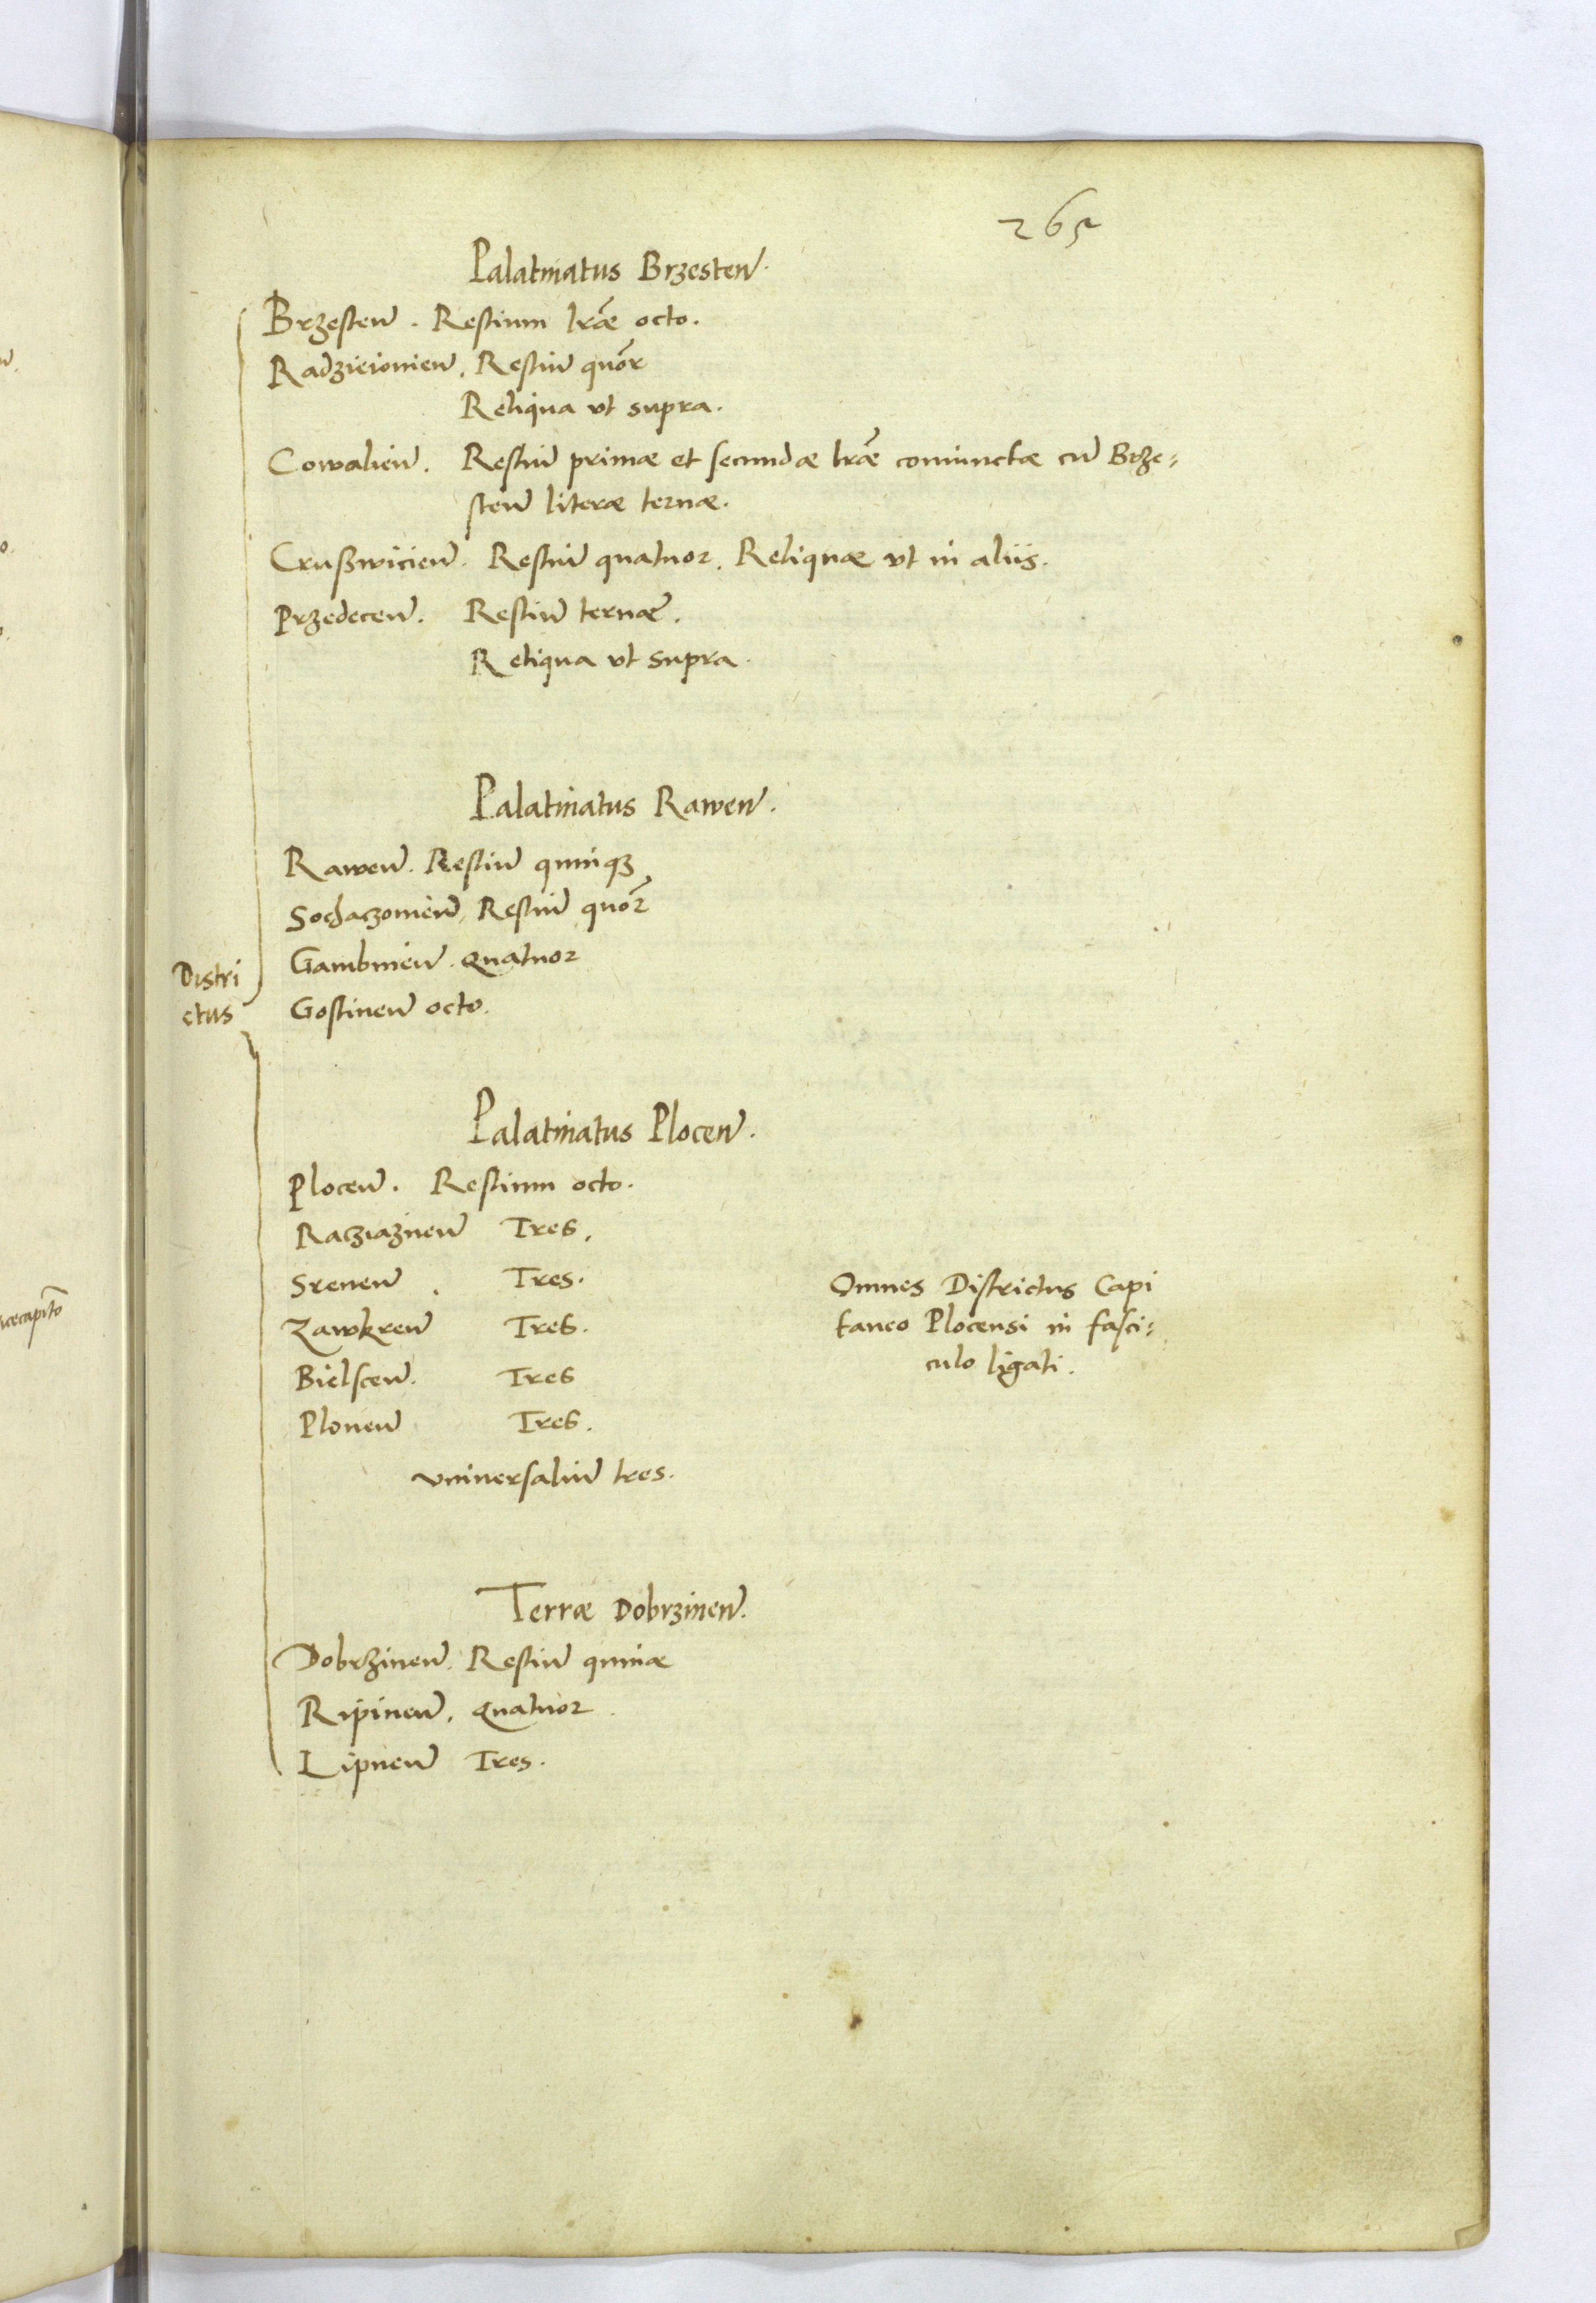 265
Palatinatus Brzesten̄.
Brzesten̄. Restium lr̃æ octo.
Radzieiouien̄. Restiū quõr
Reliqua vt supra.
Cowalien̄. Restiū primæ et secundæ lr̃æ coniunctæ cū Brze-
sten̄ literæ ternæ.
Crusswicien̄. Restiū quatuor. Reliquæ vt in aliis.
Przedecen̄. Restiū ternæ.
Reliqua vt supra.
Palatinatus Rawen̄.
Rawen̄. Restiū quinqȝ
Sochaczouien̄. Restiū quõr
Gambinien̄. quatuor
Gostinen̄ octo.
Distri
ctus
Palatinatus Plocen̄.
Plocen̄. Restium octo.
Racziaznen̄ Tres.
Srenen̄. Tres.
Zawkren̄ Tres.
Bielscen̄. Tres
Plonen̄ Tres.
vniuersaliū tres.
Omnes Districtus Capi
taneo Plocensi in fasci-
culo ligati.
Terræ Dobrzinen̄.
Dobrzinen̄. Restiū quinæ
Ripinen̄. quatuor
Lipnen̄ Tres.